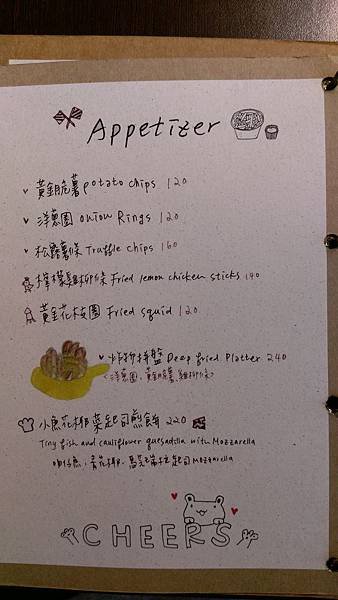 Appetizer
黃金脆薯 potato chips 120
洋蔥圈 onion Rings 120
松露薯條 Truffle chips 160
檸檬雞柳條 Fried lemon chicken sticks 140
黃金花枝圈 Fried squid 120
炸物拼盤 Deep fried Platter 240
(洋蔥圈、黃金脆薯、雞柳條)
小魚花椰菜起司煎餅 220
Tiny fish and cauliflower quesadilla with Mozzarella
吻仔魚、青花椰、馬芝瑞拉起司 Mozzarella
CHEERS